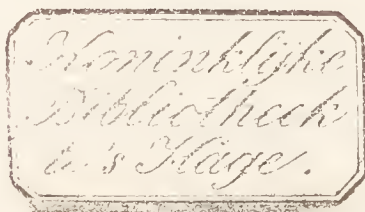 Koninklijke
Bibliotheek
à 's Hage.